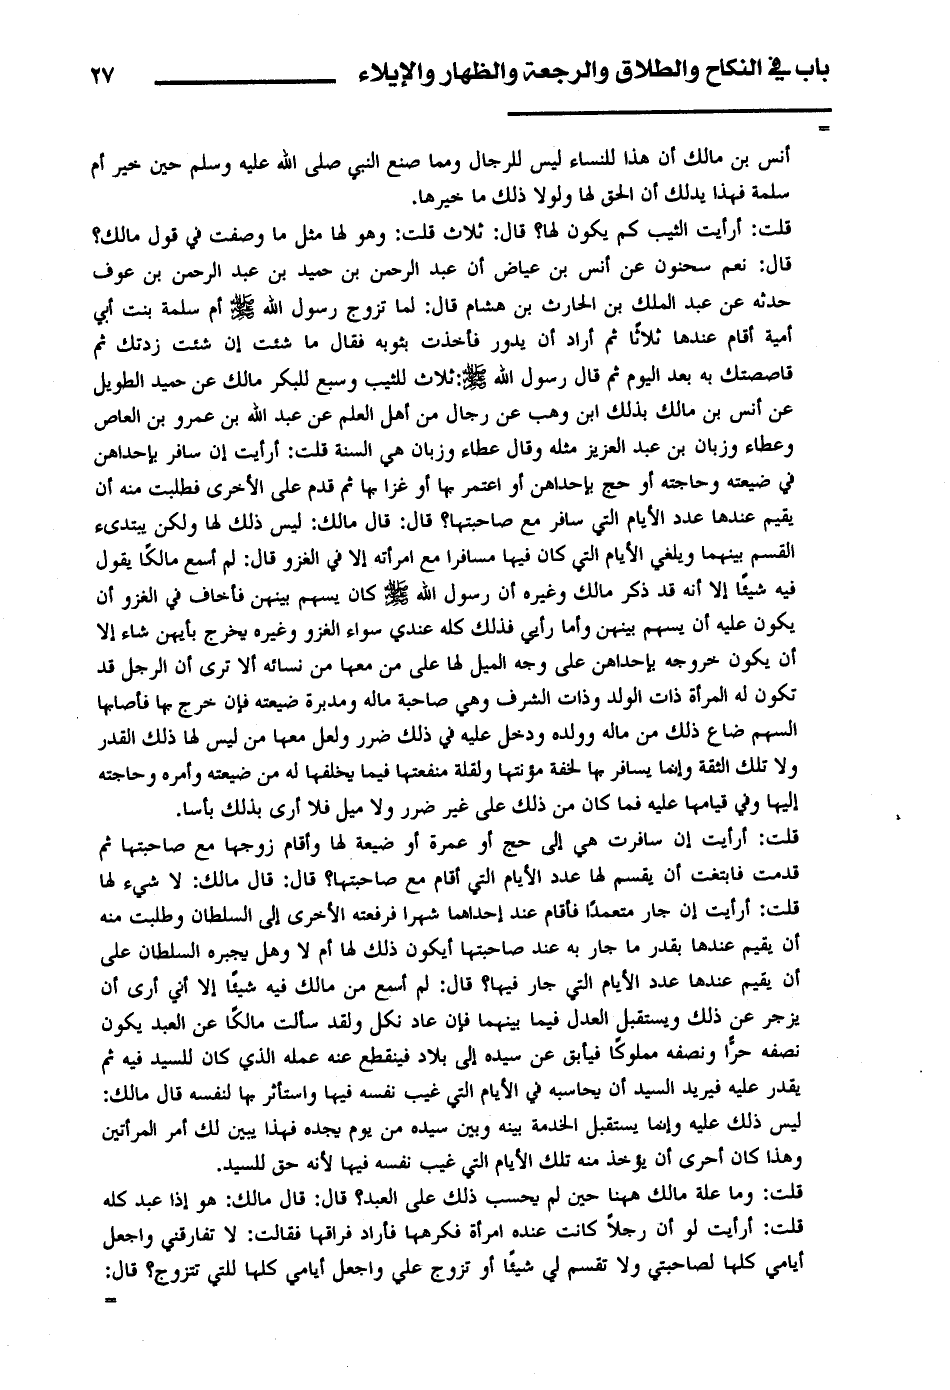 باب في النكاح والطلاق والرجعة والظهار والإيلاء ٢٧
=
أنس بن مالك أن هذا للنساء ليس للرجال ومما صنع النبي صلى الله عليه وسلم حين خير أم
سلمة فهذا يدلك أن الحق لها ولولا ذلك ما خيرها.
قلت: أرأيت الثيب كم يكون لها؟ قال: ثلاث قلت: وهو لها مثل ما وصفت في قول مالك؟
قال: نعم سحنون عن أنس بن عياض أن عبد الرحمن بن حميد بن عبد الرحمن بن عوف
حدثه عن عبد الملك بن الحارث بن هشام قال: لما تزوج رسول الله ﷺ أم سلمة بنت أبي
أمية أقام عندها ثلاثًا ثم أراد أن يدور فأخذت بثوبه فقال ما شئت إن شئت زدتك ثم
قاصصتك به بعد اليوم ثم قال رسول الله ﷺ:ثلاث للثيب وسبع للبكر مالك عن حميد الطويل
عن أنس بن مالك بذلك ابن وهب عن رجال من أهل العلم عن عبد الله بن عمرو بن العاص
وعطاء وزبان بن عبد العزيز مثله وقال عطاء وزبان هي السنة قلت: أرأيت إن سافر بإحداهن
في ضيعته وحاجته أو حج بإحداهن أو اعتمر بها أو غزا بها ثم قدم على الأخرى فطلبت منه أن
يقيم عندها عدد الأيام التي سافر مع صاحبتها؟ قال: قال مالك: ليس ذلك لها ولكن يبتدىء
القسم بينهما ويلغي الأيام التي كان فيها مسافرا مع امرأته إلا في الغزو قال: لم أسمع مالكًا يقول
فيه شيئًا إلا أنه قد ذكر مالك وغيره أن رسول الله ﷺ كان يسهم بينهن فأخاف في الغزو أن
يكون عليه أن يسهم بينهن وأما رأيي فذلك كله عندي سواء الغزو وغيره يخرج بأيهن شاء إلا
أن يكون خروجه بإحداهن على وجه الميل لها على من معها من نسائه ألا ترى أن الرجل قد
تكون له المرأة ذات الولد وذات الشرف وهي صاحبة ماله ومدبرة ضيعته فإن خرج بها فأصابها
السهم ضاع ذلك من ماله وولده ودخل عليه في ذلك ضرر ولعل معها من ليس لها ذلك القدر
ولا تلك الثقة وإنما يسافر بها لخفة مؤنتها ولقلة منفعتها فيما يخلفها له من ضيعته وأمره وحاجته
إليها وفي قيامها عليه فما كان من ذلك على غير ضرر ولا ميل فلا أرى بذلك بأسا.
قلت: أرأيت إن سافرت هي إلى حج أو عمرة أو ضيعة لها وأقام زوجها مع صاحبتها ثم
قدمت فابتغت أن يقسم لها عدد الأيام التي أقام مع صاحبتها؟ قال: قال مالك: لا شيء لها
قلت: أرأيت إن جار متعمدًا فأقام عند إحداهما شهرا فرفعته الأخرى إلى السلطان وطلبت منه
أن يقيم عندها بقدر ما جار به عند صاحبتها أيكون ذلك لها أم لا وهل يجبره السلطان على
أن يقيم عندها عدد الأيام التي جار فيها؟ قال: لم أسمع من مالك فيه شيئًا إلا أني أرى أن
يزجر عن ذلك ويستقبل العدل فيما بينهما فإن عاد نكل ولقد سألت مالكًا عن العبد يكون
نصفه حرًّا ونصفه مملوكًا فيأبق عن سيده إلى بلاد فينقطع عنه عمله الذي كان للسيد فيه ثم
يقدر عليه فيريد السيد أن يحاسبه في الأيام التي غيب نفسه فيها واستأثر بها لنفسه قال مالك:
ليس ذلك عليه وإنما يستقبل الخدمة بينه وبين سيده من يوم يجده فهذا يبين لك أمر المرأتين
وهذا كان أحرى أن يؤخذ منه تلك الأيام التي غيب نفسه فيها لأنه حق للسيد.
قلت: وما علة مالك ههنا حين لم يحسب ذلك على العبد؟ قال: قال مالك: هو إذا عبد كله
قلت: أرأيت لو أن رجلاً كانت عنده امرأة فكرهها فأراد فراقها فقالت: لا تفارقني واجعل
أيامي كلها لصاحبتي ولا تقسم لي شيئًا أو تزوج علي واجعل أيامي كلها للتي تتزوج؟ قال:
=